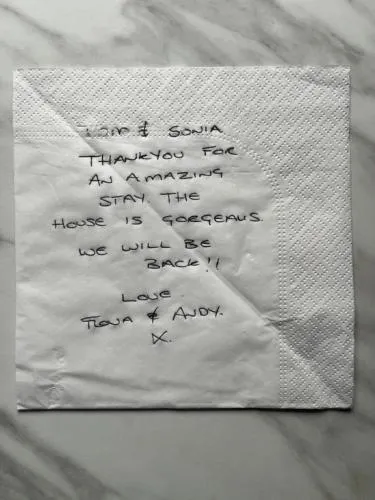 & SONIA
THANKYOU FOR
AN AMAZING
STAY. THE
HOUSE IS GORGEAUS.
WE WILL BE
BACK!!
LOVE.
& ANDY.
X.